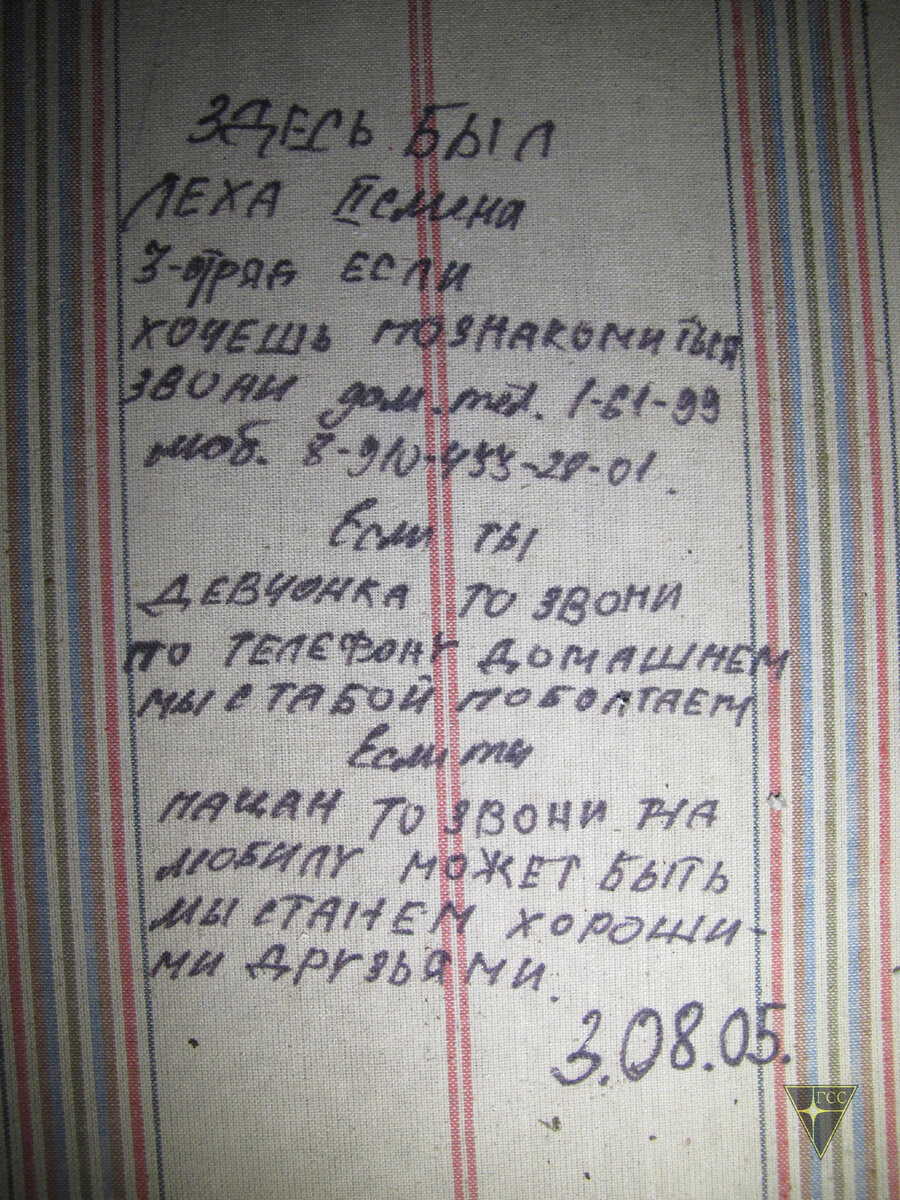 ЗДЕСЬ БЫЛ
ЛЕХА II смена
3-отряд ЕСЛИ
ХОЧЕШЬ ПОЗНАКОМИТЬСЯ
ЗВОНИ дом. тел. 1-61-99
моб. 8-910-433-28-01.
Если ты
ДЕВЧОНКА ТО ЗВОНИ
ПО ТЕЛЕФОНУ ДОМАШНЕМ
МЫ С ТАБОЙ ПОБОЛТАЕМ
Если ты
ПАЦАН ТО ЗВОНИ НА
МОБИЛУ МОЖЕТ БЫТЬ
МЫ СТАНЕМ ХОРОШИ-
МИ ДРУЗЬЯМИ.
3.08.05.
ГСС